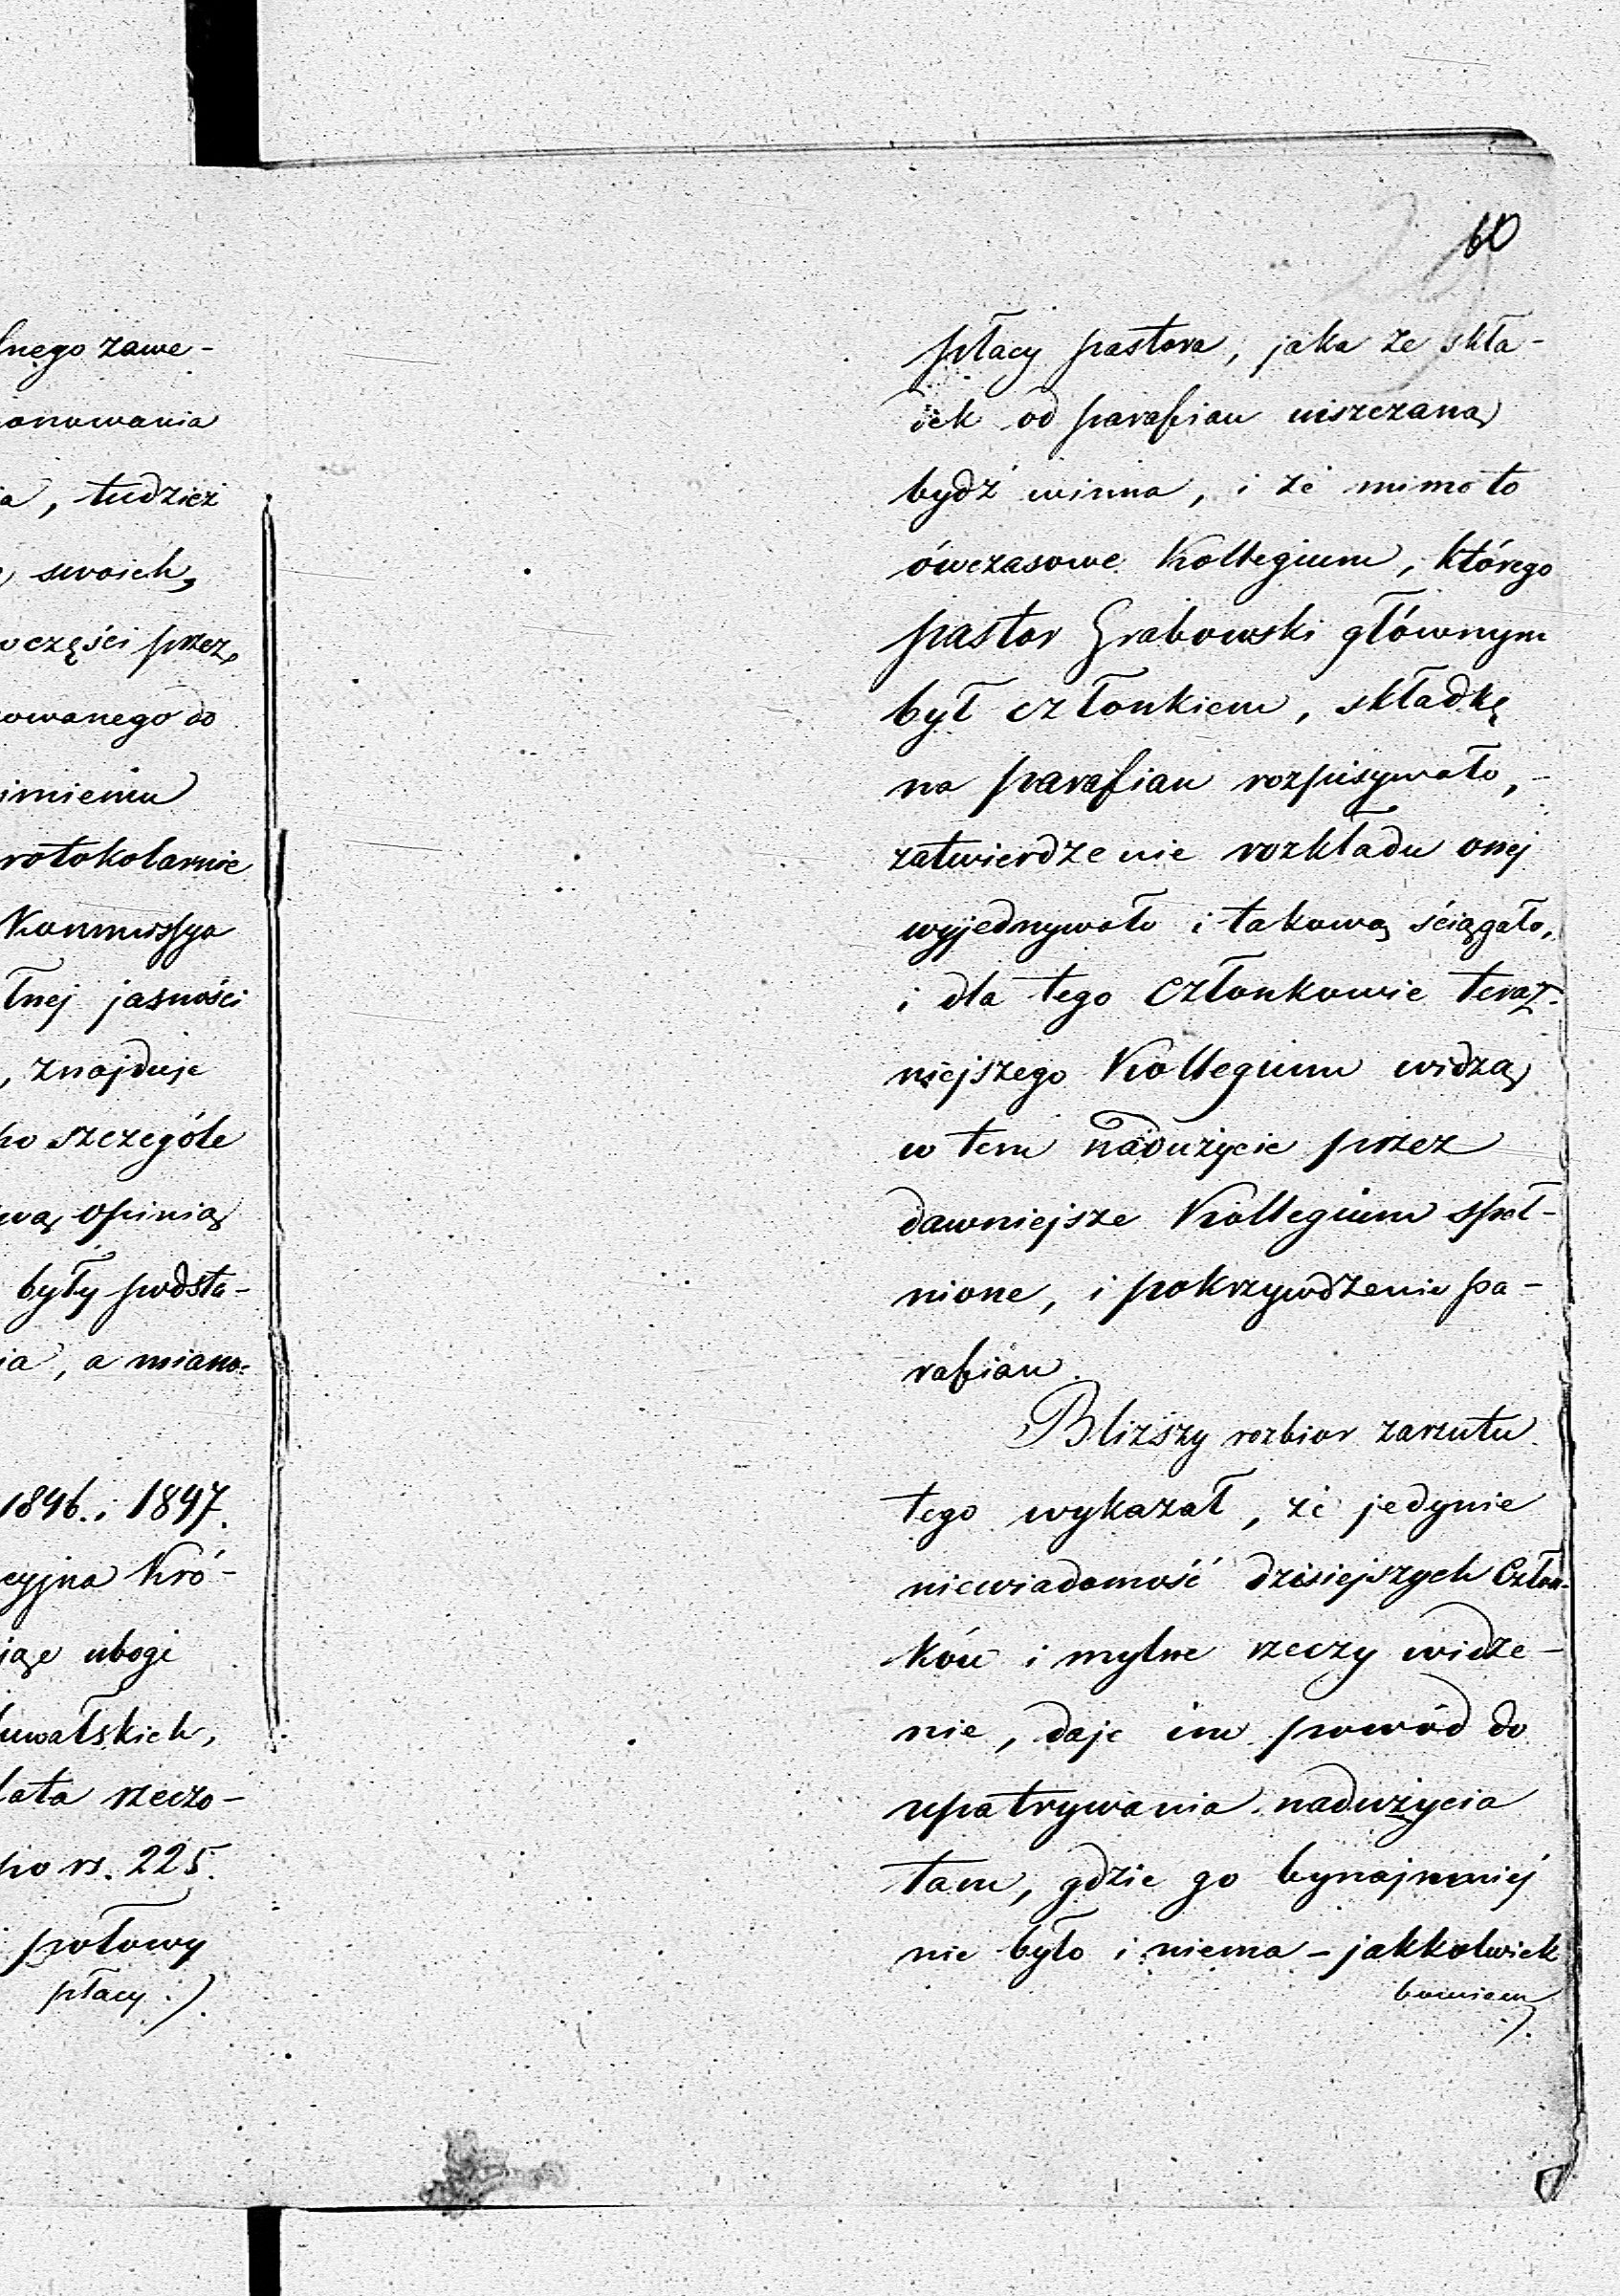 lnego zawe-
onowania
ia, tudzież
swoich,
części przez
owanego do
imieniu
rotokolarnie
Kommissya
łnej jasności
, znajduje
szczególe
wą opinią
były podsta-
ia, a miano-
1846. i 1847.
cyjna Kró-
jąc ubogi
uwałskich,
lata rzeczo-
po rs. 225.
połowy
płacy :/.
60
płacy pastora, jaka ze skła-
dek od parafian uiszczaną
bydź winna, i że mimo to
ówczasowe Kollegium, którego
pastor Grabowski głównym
był członkiem, składkę
na parafian rozpisywało,-
zatwierdzenie rozkładu onej
wyjednywało i takową ściągało,
i dla tego Członkowie teraź-
niejszego Kollegium widzą
w tem nadużycie przez
dawniejsze Kollegium speł-
nione, i pokrzywdzenie pa-
rafian.
Bliższy rozbior zarzutu
tego wykazał, że jedynie
niewiadomość dzisiejszych Człon-
ków i mylne rzeczy widze-
nie, daje im powód do
upatrywania nadużycia
tam, gdzie go bynajmniej
nie było i niema - jakkolwiek
bowiem /.